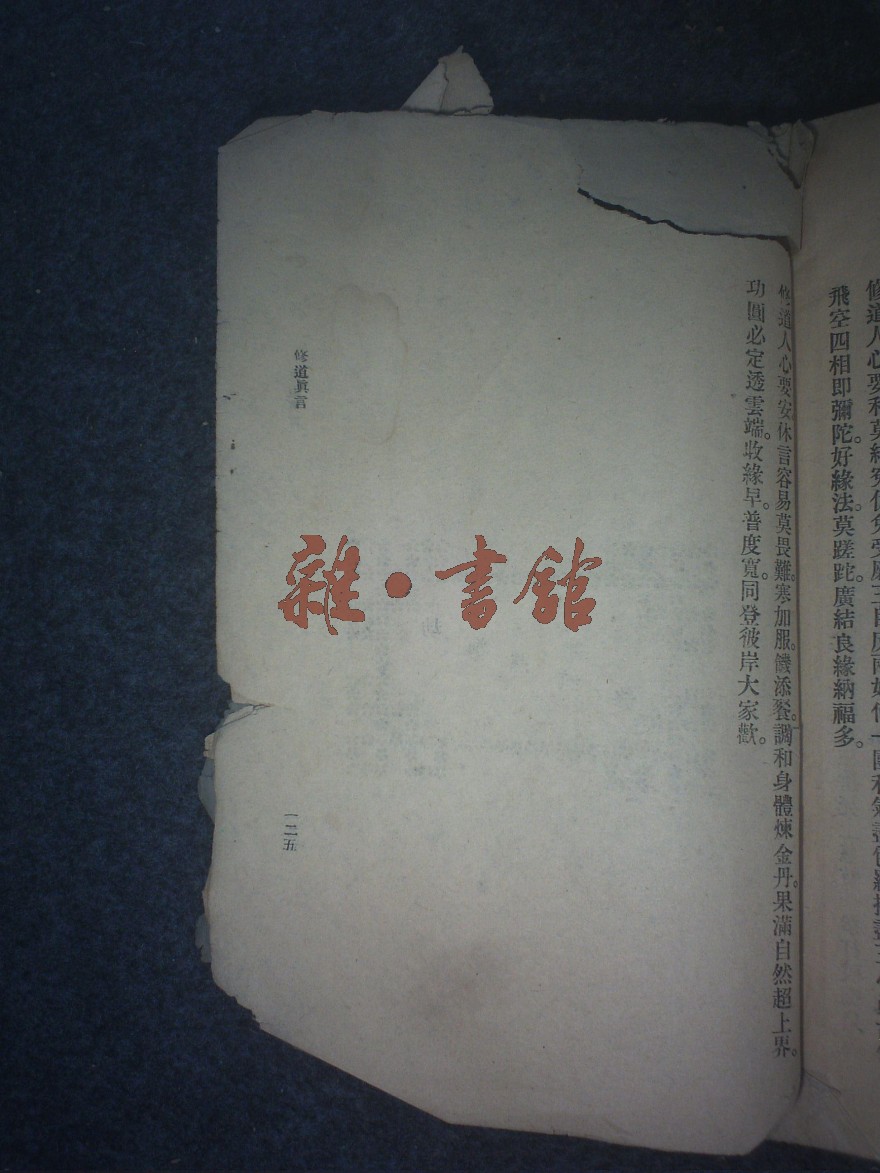 修道人心要和莫結
飛空四相即彌陀。好緣法。莫蹉跎。廣結良緣納福多。
修道人心要安。休言容易莫畏難。寒加服。饑添餐。調和身體煉金丹。果滿自然超上界。
功圓必定透雲端。收緣早。普度寬。同登彼岸大家歡。
修道眞言
一二五
雜·書館